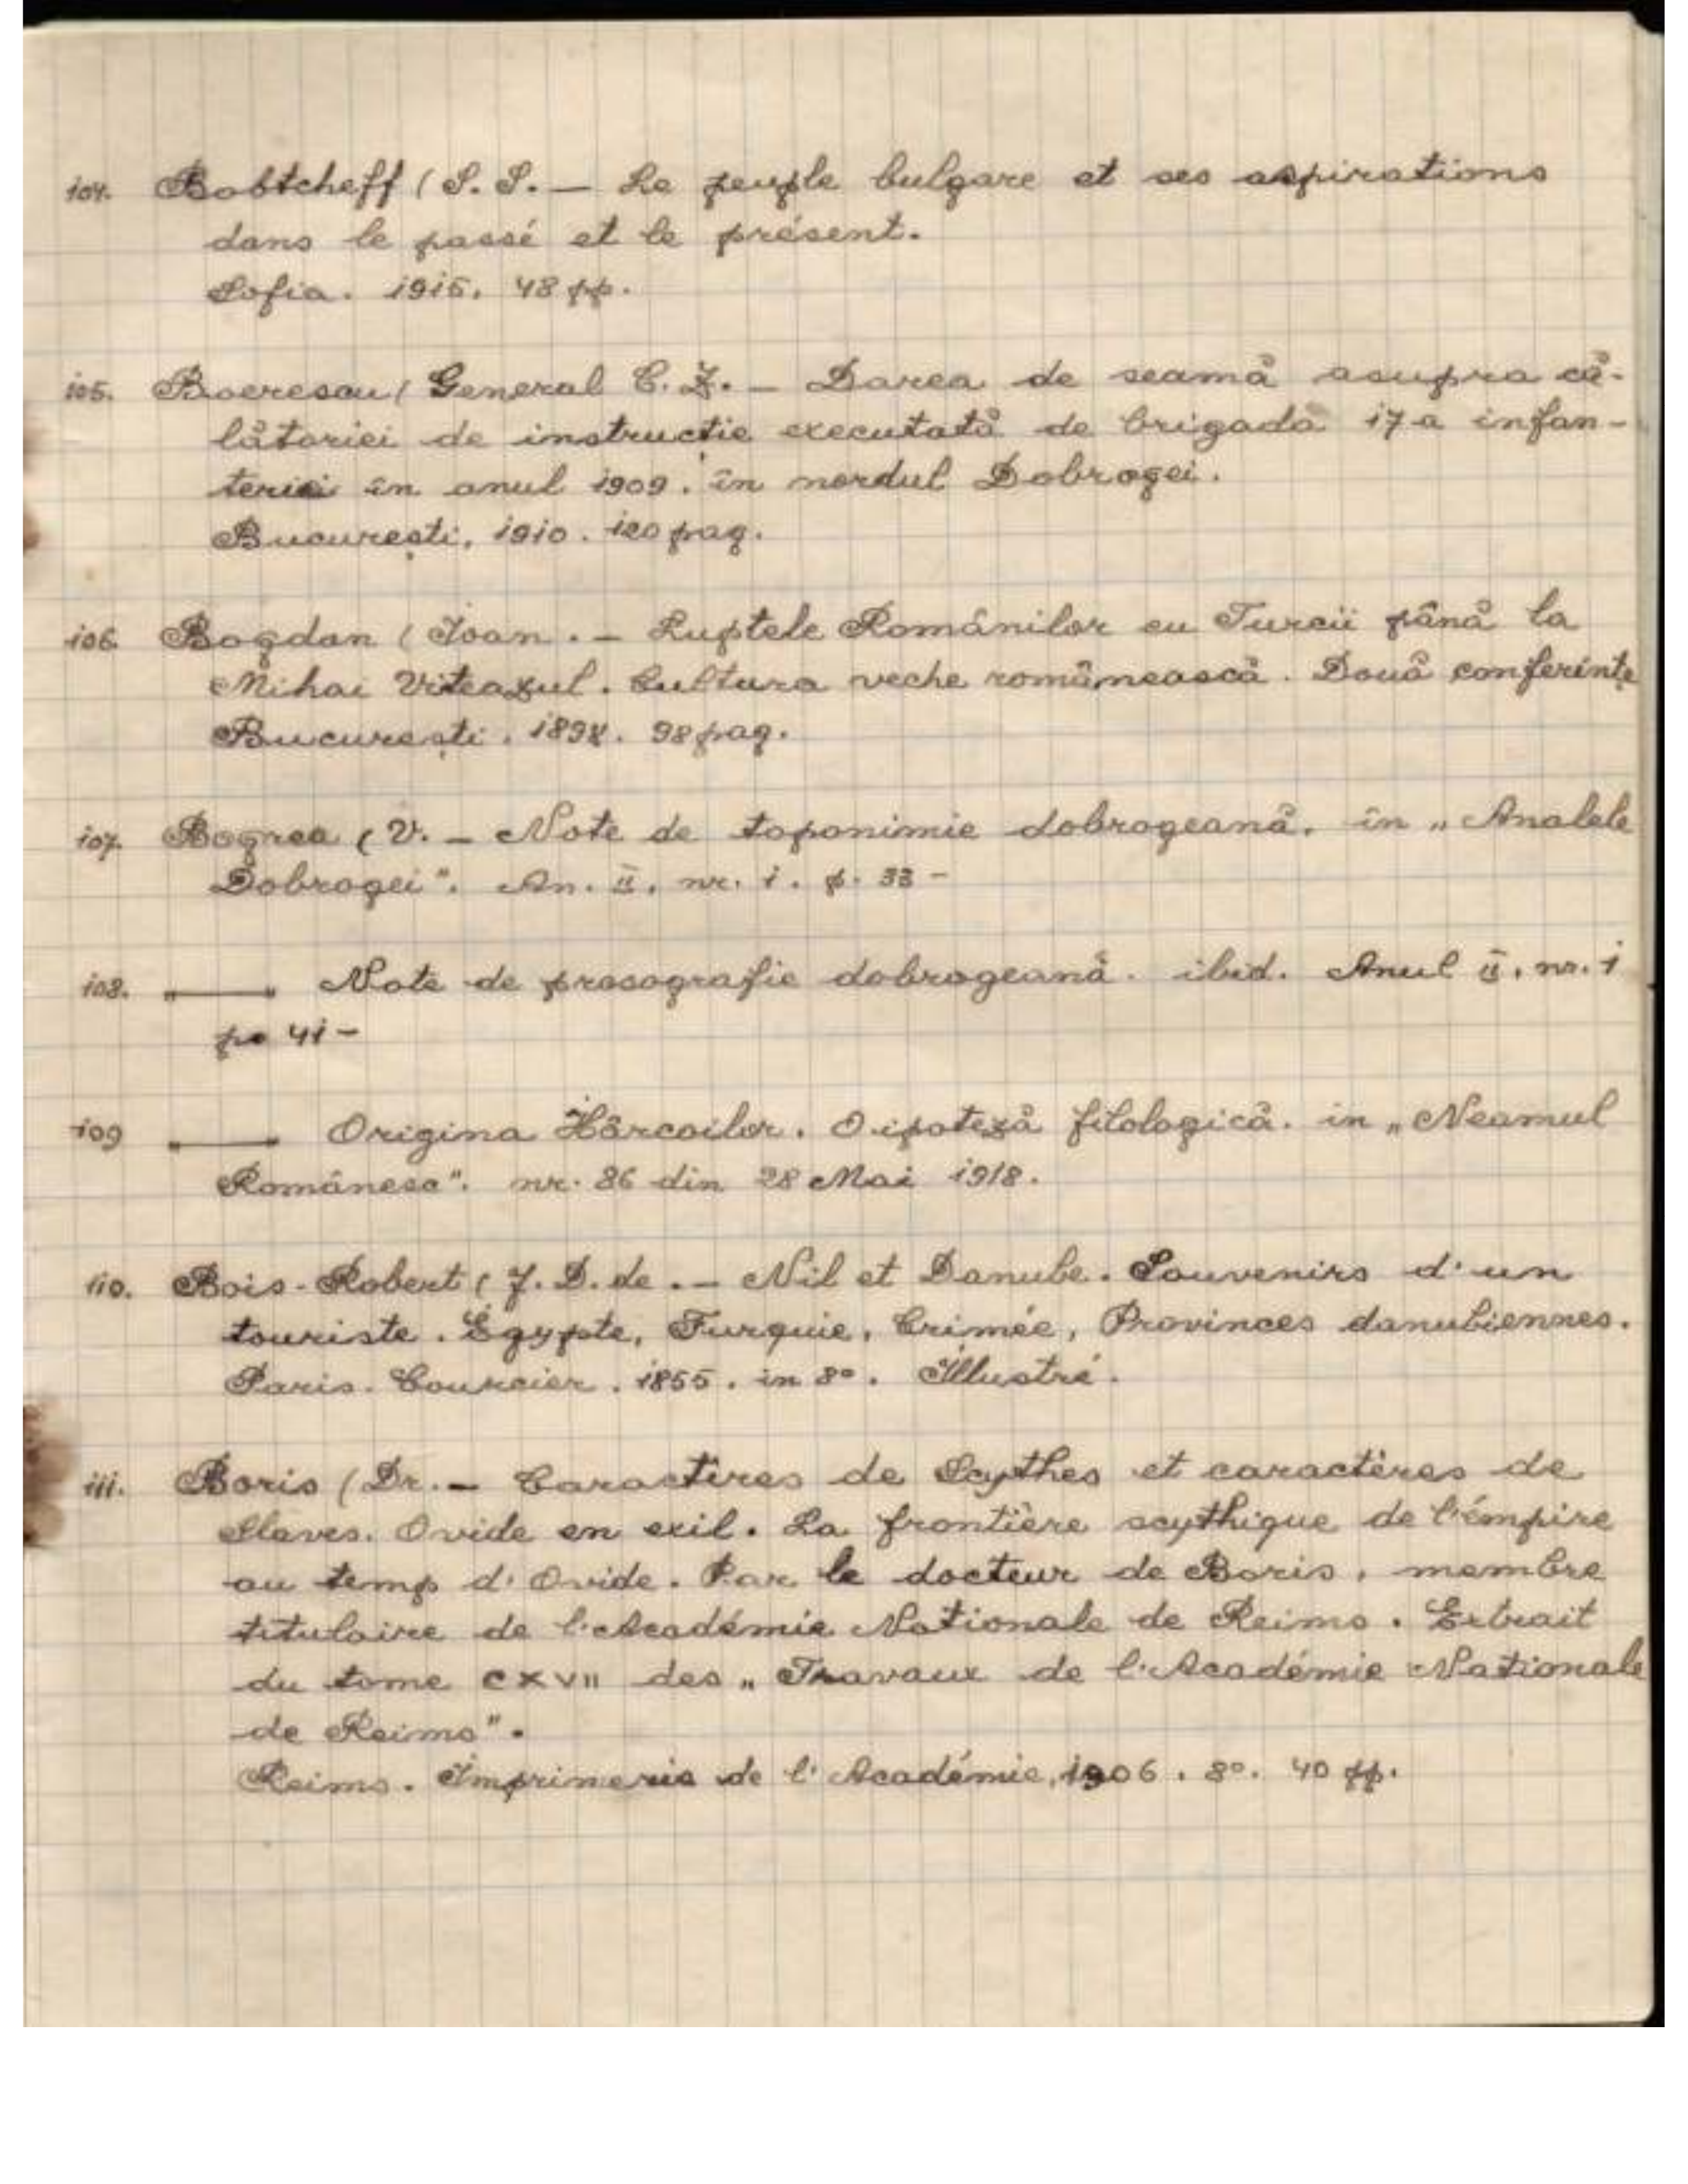 104. Bobtcheff (S. S. — Le peuple bulgare et ses aspirations
dans le passé et le présent.
Sofia. 1915. 48 pp.
105. Boerescu (General C. Z. — Darea de seamă asupra că-
lătoriei de instrucție executată de brigada 17-a infan-
teriei în anul 1909. în nordul Dobrogei.
București, 1910. 120 pag.
106. Bogdan (Ioan. — Luptele Românilor cu Turcii până la
Mihai Viteazul. Cultura veche românească. Două conferințe
București. 1898. 98 pag.
107. Bogrea (V. — Note de toponimie dobrogeană. în „Analele
Dobrogei". An. II. nr. 1. p. 33 —
108. „——" Note de prosografie dobrogeană. ibid. Anul II. nr. 1
p. 41 —
109 „——" Origina Hârcoilor. O ipoteză filologică. in „Neamul
Românesc". nr. 86 din 28 Mai 1918.
110. Bois-Robert (J. D. de. — Nil et Danube. Souvenirs d'un
touriste. Égypte, Turquie, Crimée, Provinces danubiennes.
Paris. Courcier. 1855. in 8°. Illustré.
111. Boris (Dr. — Caractères de Scythes et caractères de
Slaves. Ovide en exil. La frontière scythique de l'émpire
au temp d'Ovide. Par le docteur de Boris, membre
titulaire de l'Académie Nationale de Reims. Extrait
du tome CXVII des „Travaux de l'Académie Nationale
de Reims".
Reims. Imprimerie de l'Académie, 1906. 8°. 40 pp.